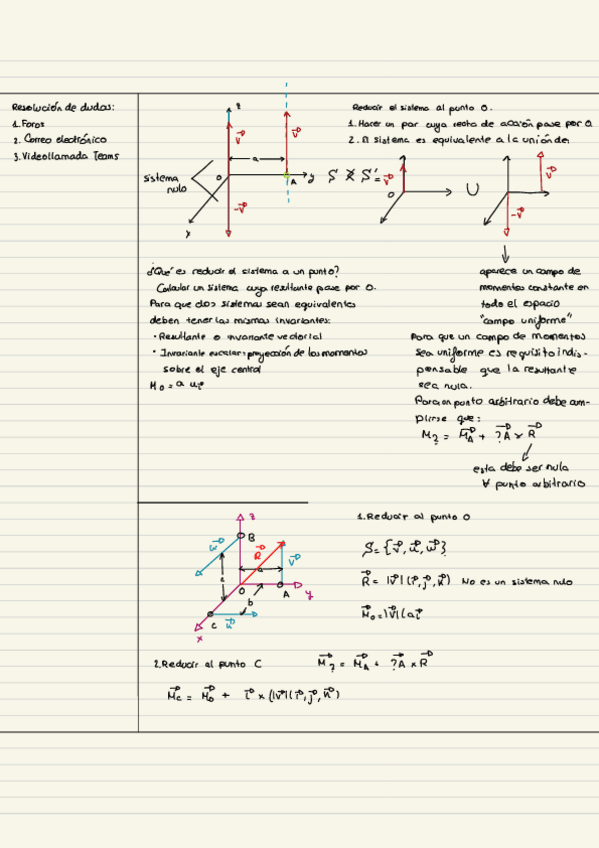 Resolución de dudas:
1. Foros
2. Correo electrónico
3. Videollamada Teams
z
v
v
a
sistema
nulo
O
A
y
-v
x
Reducir el sistema al punto O.
1. Hacer un par cuya recta de acción pase por O
2. El sistema es equivalente a la unión de:
v
O
U
v
-v
¿Qué es reducir el sistema a un punto?
Calcular un sistema cuya resultante pase por O.
Para que dos sistemas sean equivalentes
deben tener las mismas invariantes:
· Resultante o invariante vectorial
· Invariante escalar: proyección de los momentos
sobre el eje central
aparece un campo de
momentos constante en
todo el espacio
"campo uniforme"
Para que un campo de momentos
sea uniforme es requisito indis-
pensable que la resultante
sea nula.
Para un punto arbitrario debe cum-
plirse que:
M? = M_A + ?A x R
esta debe ser nula
∀ punto arbitrario
z
B
w
R
v
a
c
O
A
y
b
C
u
x
1. Reducir al punto O
S = {v, u, w}
R = |v| (i, j, k) No es un sistema nulo
2. Reducir al punto C
M? = M_A + ?A x R